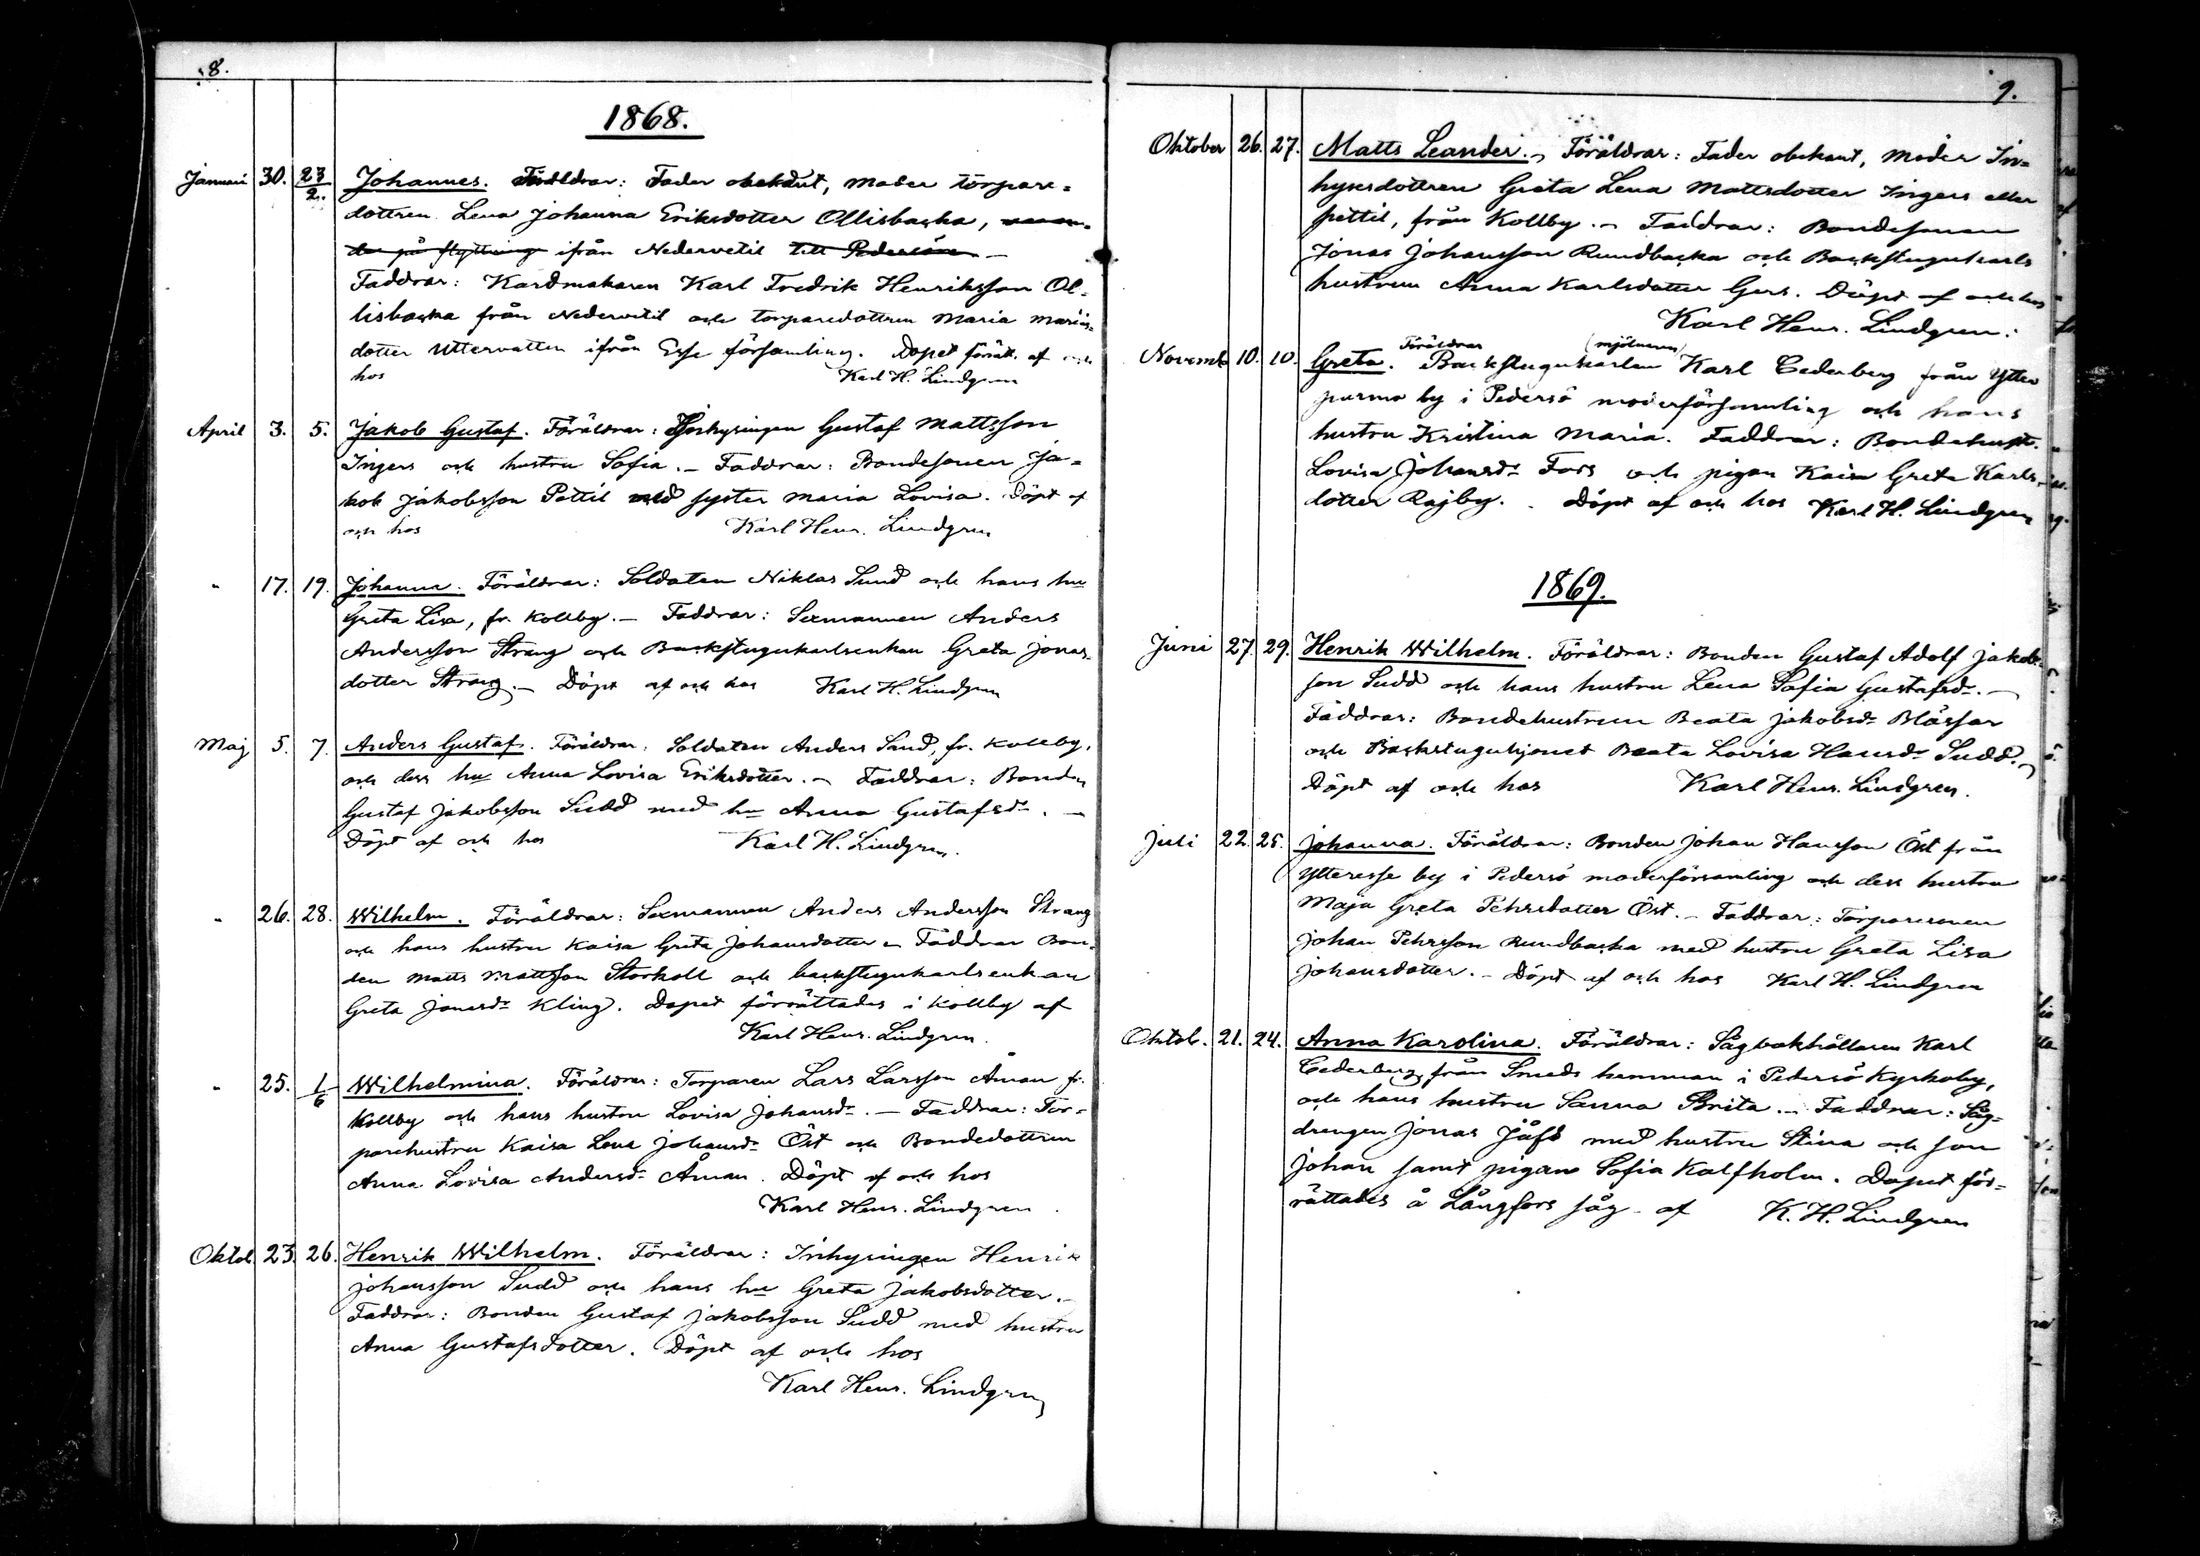 8.
1868.
Januari 30. 23/2. Johannes. Föräldrar: Fader obekant, moder torpare-
dottren Lena Johanna Eriksdotter Ollisbacka,
de på flyttning ifrån Nedervetil till Pedersöre —
Faddrar: Kardmakaren Karl Fredrik Henriksson Ol-
lisbacka från Nedervetil och torparedottren Maria Marias-
dotter Uttervatten ifrån Esse församling. Dopet förrätt. af och
hos Karl H. Lindgren
April 3. 5. Jakob Gustaf. Föräldrar: Inhysingen Gustaf Mattsson
Ingers och hustru Sofia. — Faddrar: Bondesonen Ja-
kob Jakobsson Pettil med syster Maria Lovisa. Döpt af
och hos Karl Henr. Lindgren
" 17. 19. Johanna. Föräldrar: Soldaten Niklas Sund och hans hu
Greta Lisa, fr. Kollby. — Faddrar: Sexmannen Anders
Andersson Strang och Backstugukarlsenkan Greta Jonas-
dotter Strang. — Döpt af och hos Karl H. Lindgren
Maj 5. 7. Anders Gustaf. Föräldrar: Soldaten Anders Sand, fr. Kollby,
och dess hu Anna Lovisa Eriksdotter. — Faddrar: Bonden
Gustaf Jakobsson Sudd med hu Anna Gustafsdr. —
Döpt af och hos Karl H. Lindgren.
" 26. 28. Wilhelm. Föräldrar: Sexmannen Anders Andersson Strang
och hans hustru Kaisa Greta Johansdotter — Faddrar Bon-
den Matts Mattsson Storkoll och backstugukarlsenkan
Greta Jonasdr Kling. Dopet förrättades i Kollby af
Karl Henr. Lindgren.
" 25. 1/6 Wilhelmina. Föräldrar: Torparen Lars Larsson Åman fr.
Kollby och hans hustru Lovisa Johansdr. — Faddrar: Tor-
parehustru Kaisa Lena Johansdr Öst och Bondedottren
Anna Lovisa Andersdr Åman. Döpt af och hos
Karl Henr. Lindgren
Oktob. 23. 26. Henrik Wilhelm. Föräldrar: Inhysingen Henrik
Johansson Sudd och hans hu Greta Jakobsdotter. —
Faddrar: Bonden Gustaf Jakobsson Sudd med hustru
Anna Gustafsdotter. Döpt af och hos
Karl Henr. Lindgren
9.
Oktober 26. 27. Matts Leander. — Föräldrar: Fader obekant, moder In-
hysesdottren Greta Lena Mattsdotter Ingers eller
Pettil, från Kollby. — Faddrar: Bondesonen
Jonas Johansson Rundbacka och Backstugukarls
hustrun Anna Karlsdotter Gers. Döpt af och hos
Karl Henr. Lindgren.
Novemb 10. 10. Greta. Föräldrar Backstugukarlen (mjölnaren) Karl Cederberg från Ytter
purmo by i Pedersö moderförsamling och hans
hustru Kristina Maria. Faddrar: Bondehust.
Lovisa Johansdr Fors och pigan Kaisa Greta Karls-
dotter Rajby. Döpt af och hos Karl H. Lindgren
1869.
Juni 27. 29. Henrik Wilhelm. Föräldrar: Bonden Gustaf Adolf Jakobs-
son Sudd och hans hustru Lena Sofia Gustafsdr. —
Faddrar: Bondehustrun Beata Jakobsdr Blåssar
och Backstuguhjonet Beata Lovisa Hansdr Sudd. —
Döpt af och hos Karl Henr. Lindgren.
Juli 22. 25. Johanna. Föräldrar: Bonden Johan Hansson Öst från
Ytteresse by i Pedersö moderförsamling och dess hustru
Maja Greta Pehrsdotter Öst. — Faddrar: Torparesonen
Johan Pehrsson Rundbacka med hustru Greta Lisa
Johansdotter. — Döpt af och hos Karl H. Lindgren
Oktob. 21. 24. Anna Karolina. Föräldrar: Sågbokhållaren Karl
Cederberg från Smeds hemman i Pedersö Kyrkoby,
och hans hustru Sanna Brita. — Faddrar: Såg-
drengen Jonas Jåfs med hustru Stina och son
Johan samt pigan Sofia Kalfholm. Dopet för-
rättades å Långfors såg af K. H. Lindgren